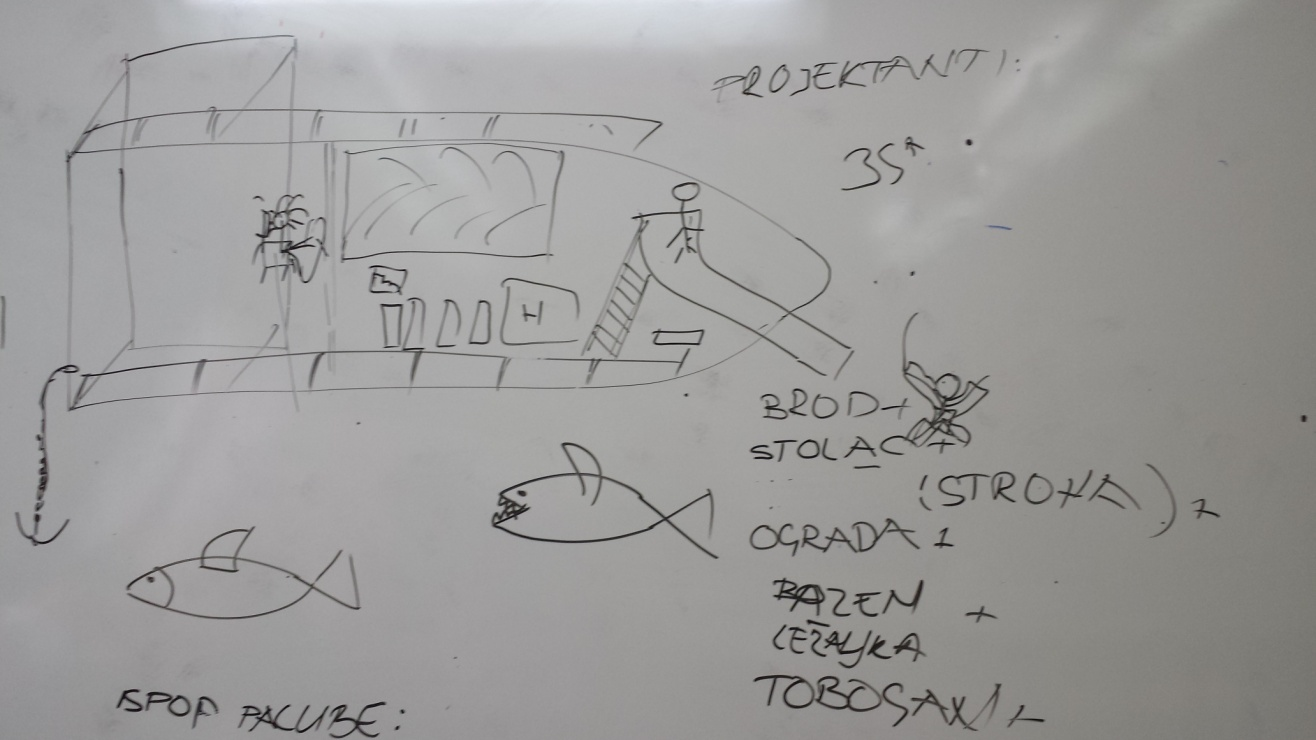 H
PROJEKTANTI:
35*
BROD +
STOLAC +
(STROHA) +
OGRADA 1
BAZEN +
LEŽALJKA
TOBOGAN +
ISPOD PALUBE: